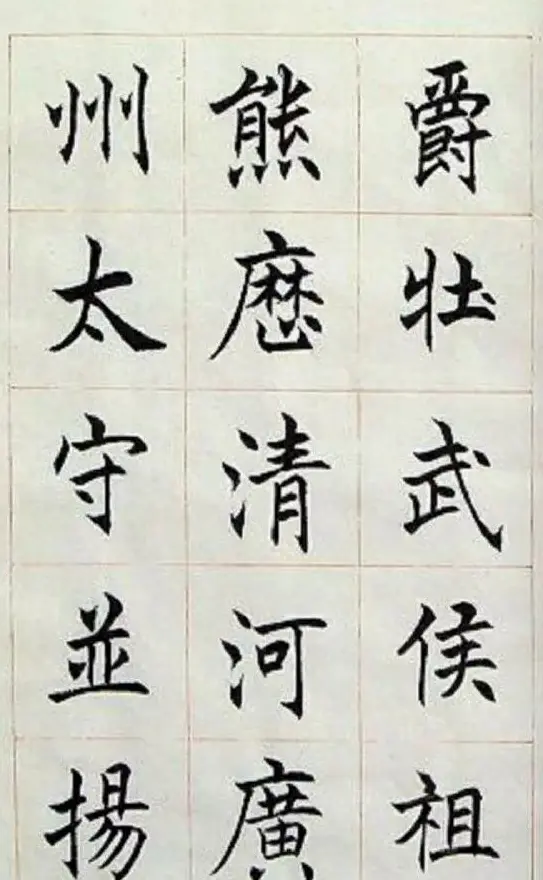 爵壮武侯祖
熊歴清河廣
州太守並揚